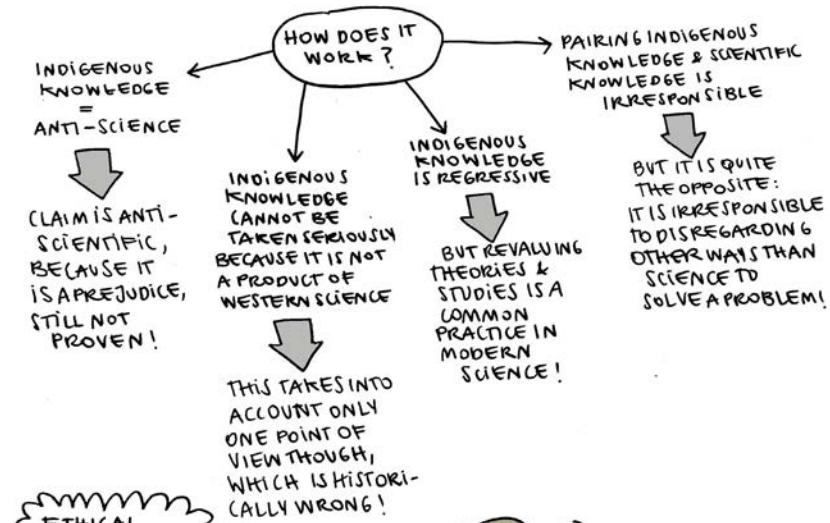 HOW DOES IT
WORK?
INDIGENOUS
KNOWLEDGE
=
ANTI-SCIENCE
CLAIM IS ANTI-
SCIENTIFIC,
BECAUSE IT
IS A PREJUDICE,
STILL NOT
PROVEN!
INDIGENOUS
KNOWLEDGE
CANNOT BE
TAKEN SERIOUSLY
BECAUSE IT IS NOT
A PRODUCT OF
WESTERN SCIENCE
THIS TAKES INTO
ACCOUNT ONLY
ONE POINT OF
VIEW THOUGH,
WHICH IS HISTORI-
CALLY WRONG!
INDIGENOUS
KNOWLEDGE
IS REGRESSIVE
BUT REVALUING
THEORIES &
STUDIES IS A
COMMON
PRACTICE IN
MODERN
SCIENCE!
PAIRING INDIGENOUS
KNOWLEDGE & SCIENTIFIC
KNOWLEDGE IS
IRRESPONSIBLE
BUT IT IS QUITE
THE OPPOSITE:
IT IS IRRESPONSIBLE
TO DISREGARDING
OTHER WAYS THAN
SCIENCE TO
SOLVE A PROBLEM!
ETHICAL